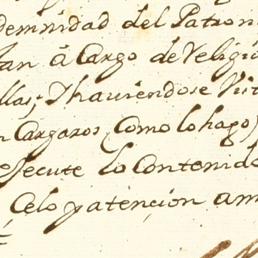 demnidad del Patron
tan á Cargo de Religio
llas; Thaviendose Vist
n Cargaros, Como lo hago,
execute lo Contenid
Celo y atencion am